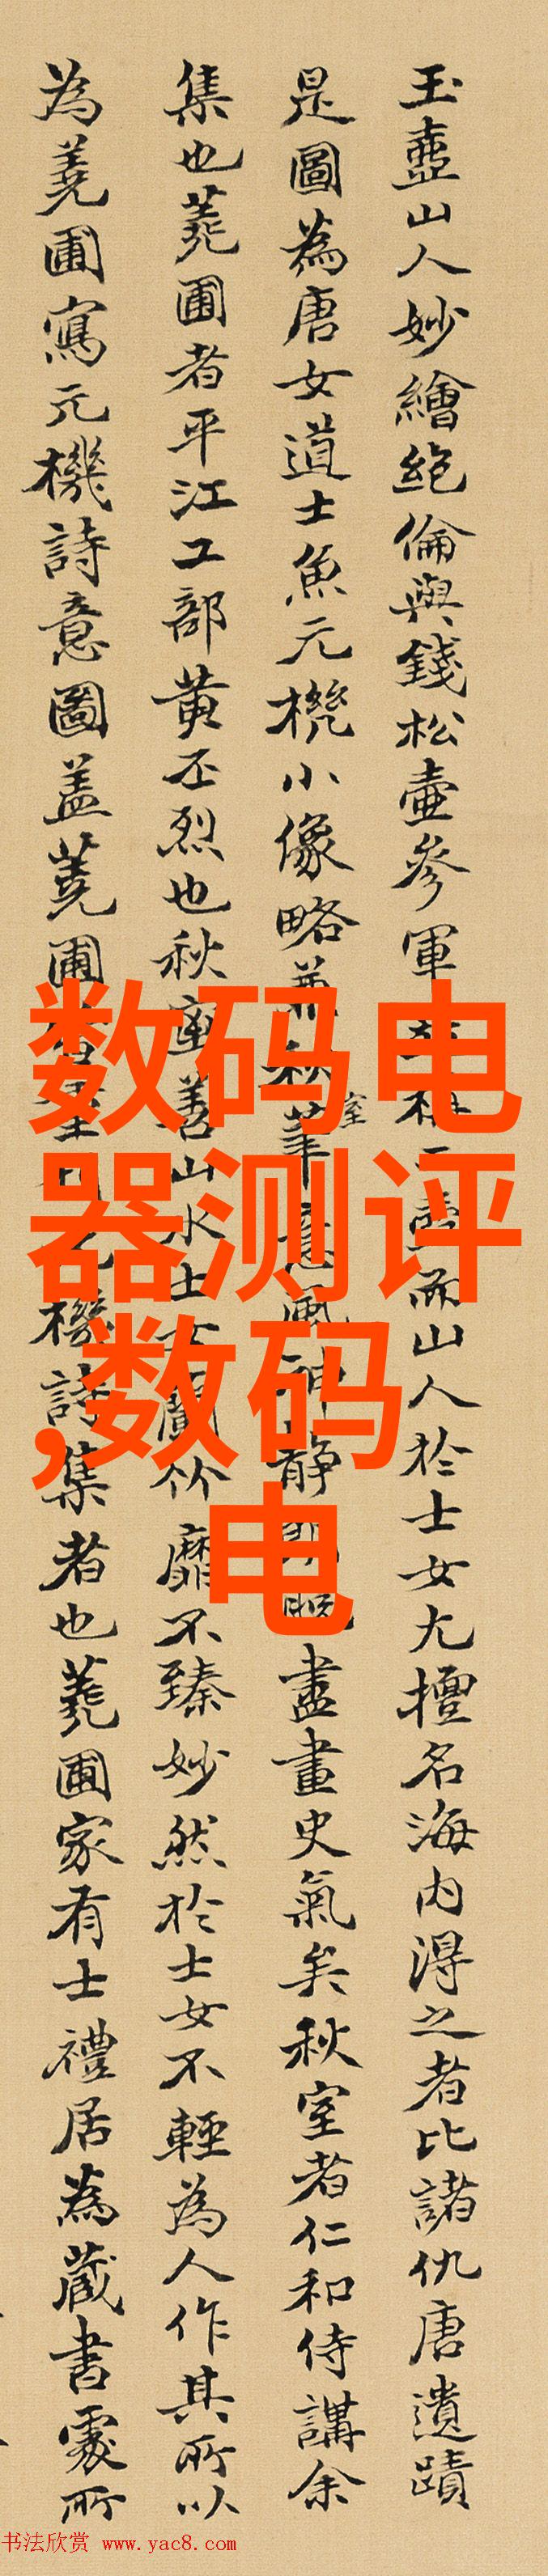 玉壺山人妙繪絶倫與錢松壺參軍而山人於士女尤擅名海内得之者比諸仇唐遺蹟
是圖為唐女道士魚元機小像略兼秋室筆意風神静盡畫史氣矣秋室者仁和侍講余
集也蕘圃者平江工部黄丕烈也秋室善山水士女蘭竹靡不臻妙然於士女不輕為人作其所以
為蕘圃寫元機詩意圖盖蕘圃機詩集者也蕘圃家有士禮居為蔵書處所
数码电
器测评
,数码
电
书法欣赏 www.yac8.com